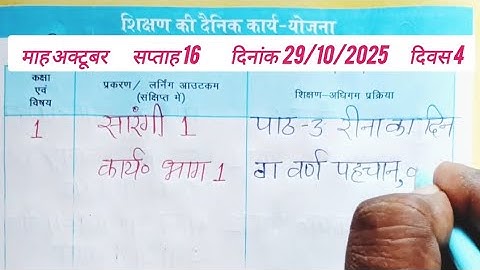 शिक्षण की दैनिक कार्य-योजना
माह अक्टूबर सप्ताह 16 दिनांक 29/10/2025 दिवस 4
कक्षा एवं विषय
प्रकरण/ लर्निंग आउटकम (संक्षिप्त में)
शिक्षण-अधिगम प्रक्रिया
1 सारंगी 1 पाठ-3 रीना का दिन
कार्य० भाग 1 ग वर्ण पहचान,